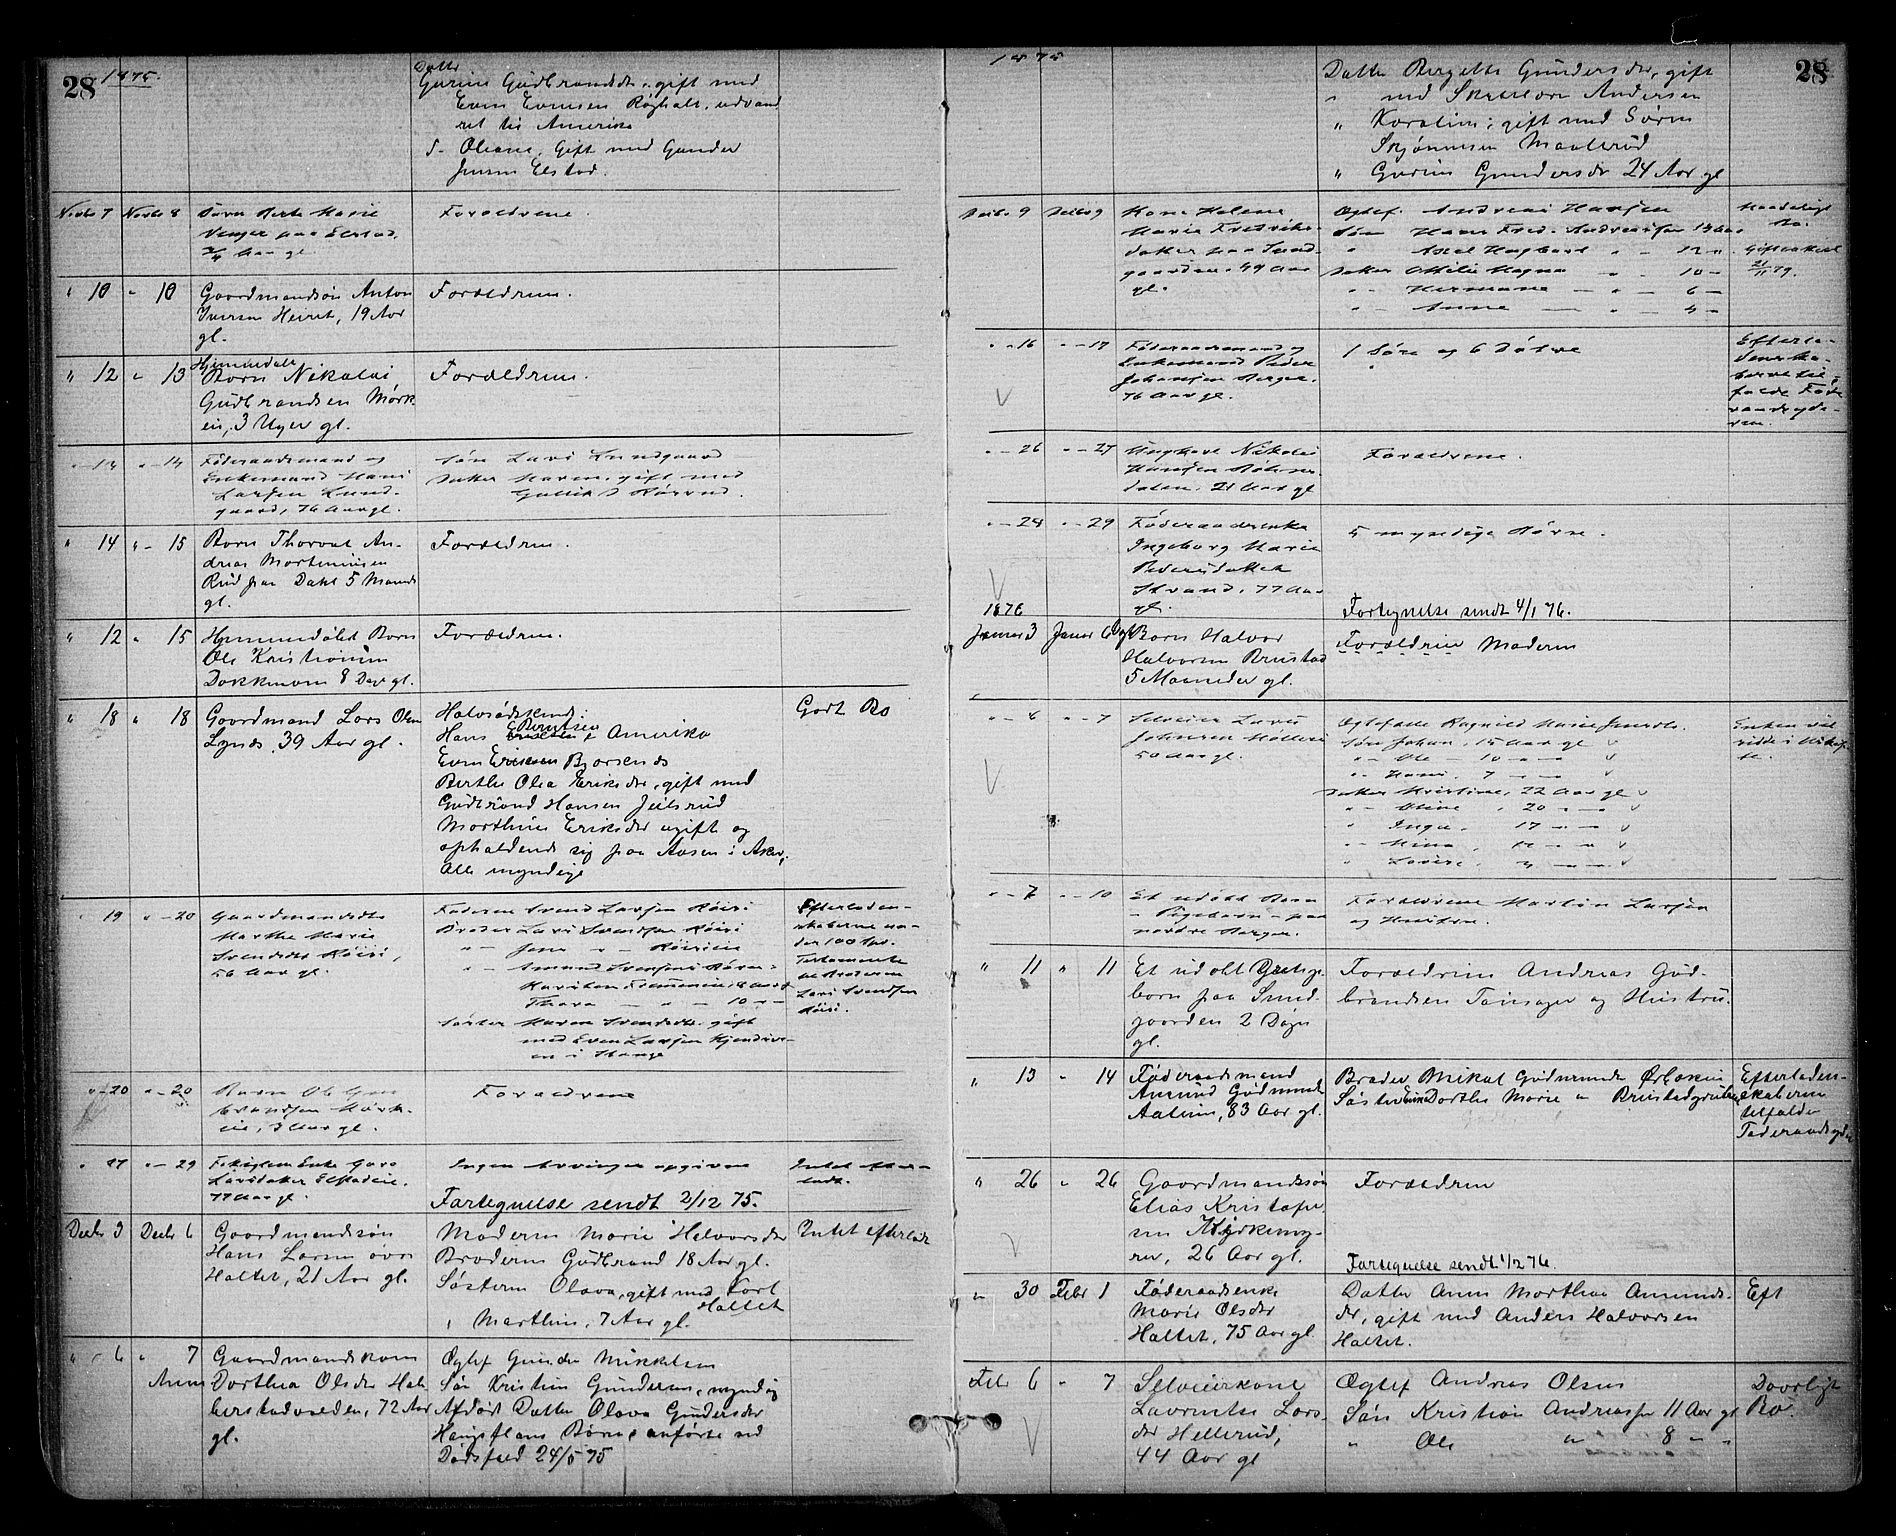 28 1875.
Datter
Gurine Gudbrandsdr, gift med
Even Evensen Røghalt, udvand
ret til Amerika
D- Oleane, Gift med Gunder
Jensen Elstad.
Novbr 7 Novbr 8 Barn Berte Marie
Forældrene.
3/4 Aar gl.
" 10 " 10 Gaardmandsøn Anton
Iversen Heiret, 19 Aar
gl.
Forældrene.
" 12 " 13 Hjemmedøbt
Barn Nikolai
Gudbrandsen Mørk
eie, 3 Uger gl.
Forældrene.
" 13 " 14 Føderaadsmand og
Enkemand Hans
Larsen Lund-
gaard, 76 Aar gl.
Søn Lars Lundgaard
Datter Maren, gift med
" 14 " 15 Barn Thorval An-
dreas Martinius
Rud paa Dahl 5 Maaneder
gl.
Forældrene.
" 12 " 15 Hjemmedøbt Barn
Ole Kristiansen
Dokkmoen 8 Dage gl.
Forældrene.
" 18 " 18 Gaardmand Lars Olsen
Lynæs, 39 Aar gl.
Halvsødskend:
Hans Berntsen i Amerika
Even Eriksen Bjørsend
Berthe Olea Eriksdr, gift med
Gudbrand Hansen Jeilsrud
Marthine Eriksdr ugift og
opholdende sig paa Aasen i Aker,
Alle myndige
Godt Bo
" 19 " 20 Gaardmandsdtr
Marthe Marie
Svendsdtr Røisi,
56 Aar gl.
Faderen Svend Larsen Røisi
Broder Lars Svendsen Røisi
" Jens " Røisieie
" Amund Svensens Børn:
Thora — " — 10 —
Søster Maren Svendsdtr, gift
med Even Larsen
i Stange
Efterladen-
skaberne un-
der 100 Spd.
Testamente
til Broderen
Lars Svendsen
Røisi.
" 20 " 20 Barn Ole Gud
brandsen Mørk-
eie, 3 Aar gl.
Forældrene
" 27 " 29 Fattiglem Enke
Larsdatter Elstadeie,
77 Aar gl.
Ingen Arvinger opgiven
Intet efter-
ladt.
Fortegnelse sendt 2/12 75.
Decbr 3 Decbr 6 Gaardmandssøn
Hans Larsen øvre
Haltet, 21 Aar gl.
Moderen Marie Halvorsdr
Broderen Gudbrand 18 Aar gl.
Søsteren Olava, gift med Karl
Haltet
" Marthine, 7 Aar gl.
Intet efterladt
" 6 " 7 Gaardmandskone
Anne
Dorthea Olsdr Hal
berstadvæden, 72 Aar
gl.
Ægtef Gunder Mikkelsen
Søn Kristian Gundersen, myndig
Afdød Datter Olava Gundersdr
Børn anførte ved
Dødsfald 24/5 75
1875 28
Datter Bergette Gundersdr, gift
" med Andersen
" Karoline; gift med Søren
Skjønnesen Maalerud
" Gurine Gundersdr 24 Aar gl
Decbr 9 Decbr 9 Kone Helene
Marie Fredriks-
datter paa Sund-
gaarden, 49 Aar
gl.
Ægtef. Andreas Hansen
Søn Hans Fred. Andreassen 13 Aar
" Axel Hagbart " - 12 "
Datter Ottilie Magna " - 10 -
" - Hermane — " - 6 -
" - Anne — " - 4 -
Maadeligt
Bo.
Gifteattest
21/11 79.
" - 16 " - 17 Føderaadsmand og
Enkemand Peder
Johansen Berger,
76 Aar gl.
1 Søn og 6 Døtre
Efterla-
denska-
berne til-
falde Føde
raadsyde-
ren.
" - 26 " - 27 Ungkarl Nikolai
Hansen
dalen, 21 Aar gl
Forældrene.
" - 24 " - 29 Føderaadsenke
Ingeborg Marie
Pedersdatter
Strand, 77 Aar
gl.
5 myndige Børn.
1876
Fortegnelse sendt 4/1 76.
Januar 3 Januar 6 Barn Halvor
Halvorsen Brustad
5 Maaneder gl.
Forældrene Moderen
" - 6 " - 7 Selveier Lars
Johansen Mølleri
50 Aar gl.
Ægtefælle Ragnild Marie
Søn Johan, 15 Aar gl
" - Ole - 10 - -
" - Hans, 7 - -
Datter Kristine, 22 Aar gl
" - Oline, 20 - -
" Inga, 17 - -
" - Mina,
" Lovise,
Enken vil
sidde i Uskif-
te.
" - 7 " - 10 Et udøbt Barn
- Pigebarn - paa
nordre Berger.
Forældrene Martin Larsen
og Hustru.
" 11 " 11 Et udøbt Pige
barn paa Sund-
gaarden 2 Døgn
gl.
Forældrene Andreas Gud-
brandsen Tønsager og Hustru.
" 13 " 14 Føderaadsmand
Amund Gudmunds
Aaleien, 83 Aar gl.
Broder Mikal Gudmunds Ørbækeie
Søster Enke Dorthe Marie " Brustadgruben
Efterladen-
skaberne
tilfalder
Føderaadsyder
" 26 " 26 Gaardmandssøn
Elias Kristofer
sen Kjyrkemy-
ren, 26 Aar gl.
Forældrene
Fortegnelse sendt 1/2 76.
" 30 Febr 1 Føderaadsenke
Marie Olsdr
Haltet, 75 Aar gl
Datter Anne Marthea Amunds-
dr, gift med Anders Halvorsen
Haltet.
Eft
Febr 6 " 7 Selveierkone
Laurentse Lars-
dr Hellerud,
44 Aar gl
Ægtef Andreas Olsen
Søn Kristian Andreassen 11 Aar gl
" Ole " 8 " "
Daarligt
Bo.